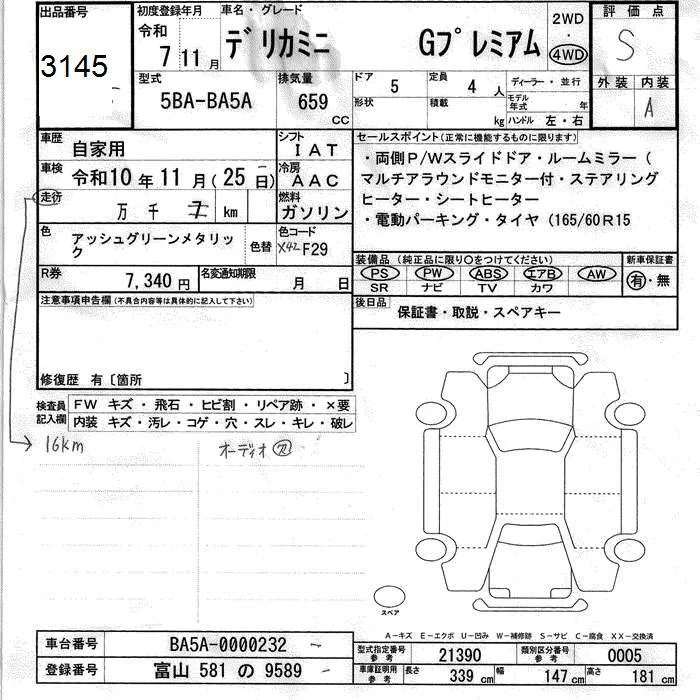 出品番号
3145
初度登録年月
令和
7 11月
車名・グレード
デリカミニ Gプレミアム
2WD
・
4WD
評価点
S
外装 内装
A
型式
5BA-BA5A
排気量
659
cc
ドア 5
形状
定員 4 人
積載 kg
ディーラー・並行
モデル年式 年
ハンドル 左・右
車歴
自家用
シフト
IAT
車検
令和10年11月(25日)
冷房
AAC
走行
万 千 km
燃料
ガソリン
色
アッシュグリーンメタリック
色替
色コード
X42 F29
R券
7,340円
名変通知期限
月 日
セールスポイント(正常に機能するものに限ります)
・両側P/Wスライドドア・ルームミラー(
マルチアラウンドモニター付・ステアリング
ヒーター・シートヒーター
・電動パーキング・タイヤ(165/60R15
装備品(純正品に限り○をつけてください)
PS PW ABS エアB AW
SR ナビ TV カワ
新車保証書
有・無
後日品
保証書・取説・スペアキー
注意事項申告欄(不具合内容等は具体的に記入して下さい)
修復歴 有〔箇所 〕
検査員記入欄
FW キズ・飛石・ヒビ割・リペア跡・×要
内装 キズ・汚レ・コゲ・穴・スレ・キレ・破レ
16km
オーディオ
スペア
A-キズ E-エクボ U-凹み W-補修跡 S-サビ C-腐食 XX-交換済
車台番号
BA5A-0000232
登録番号
富山 581 の 9589
型式指定番号
参考
21390
類別区分番号
参考
0005
車庫証明用
参考
長さ 339 cm 幅 147 cm 高さ 181 cm